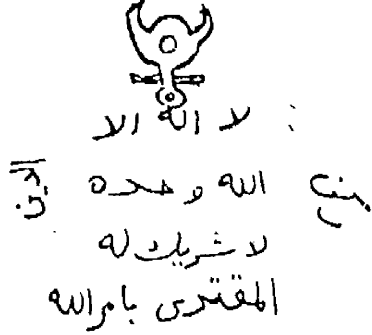 لا اله الا
الله وحده
لا شريك له
المقتدى بامر الله